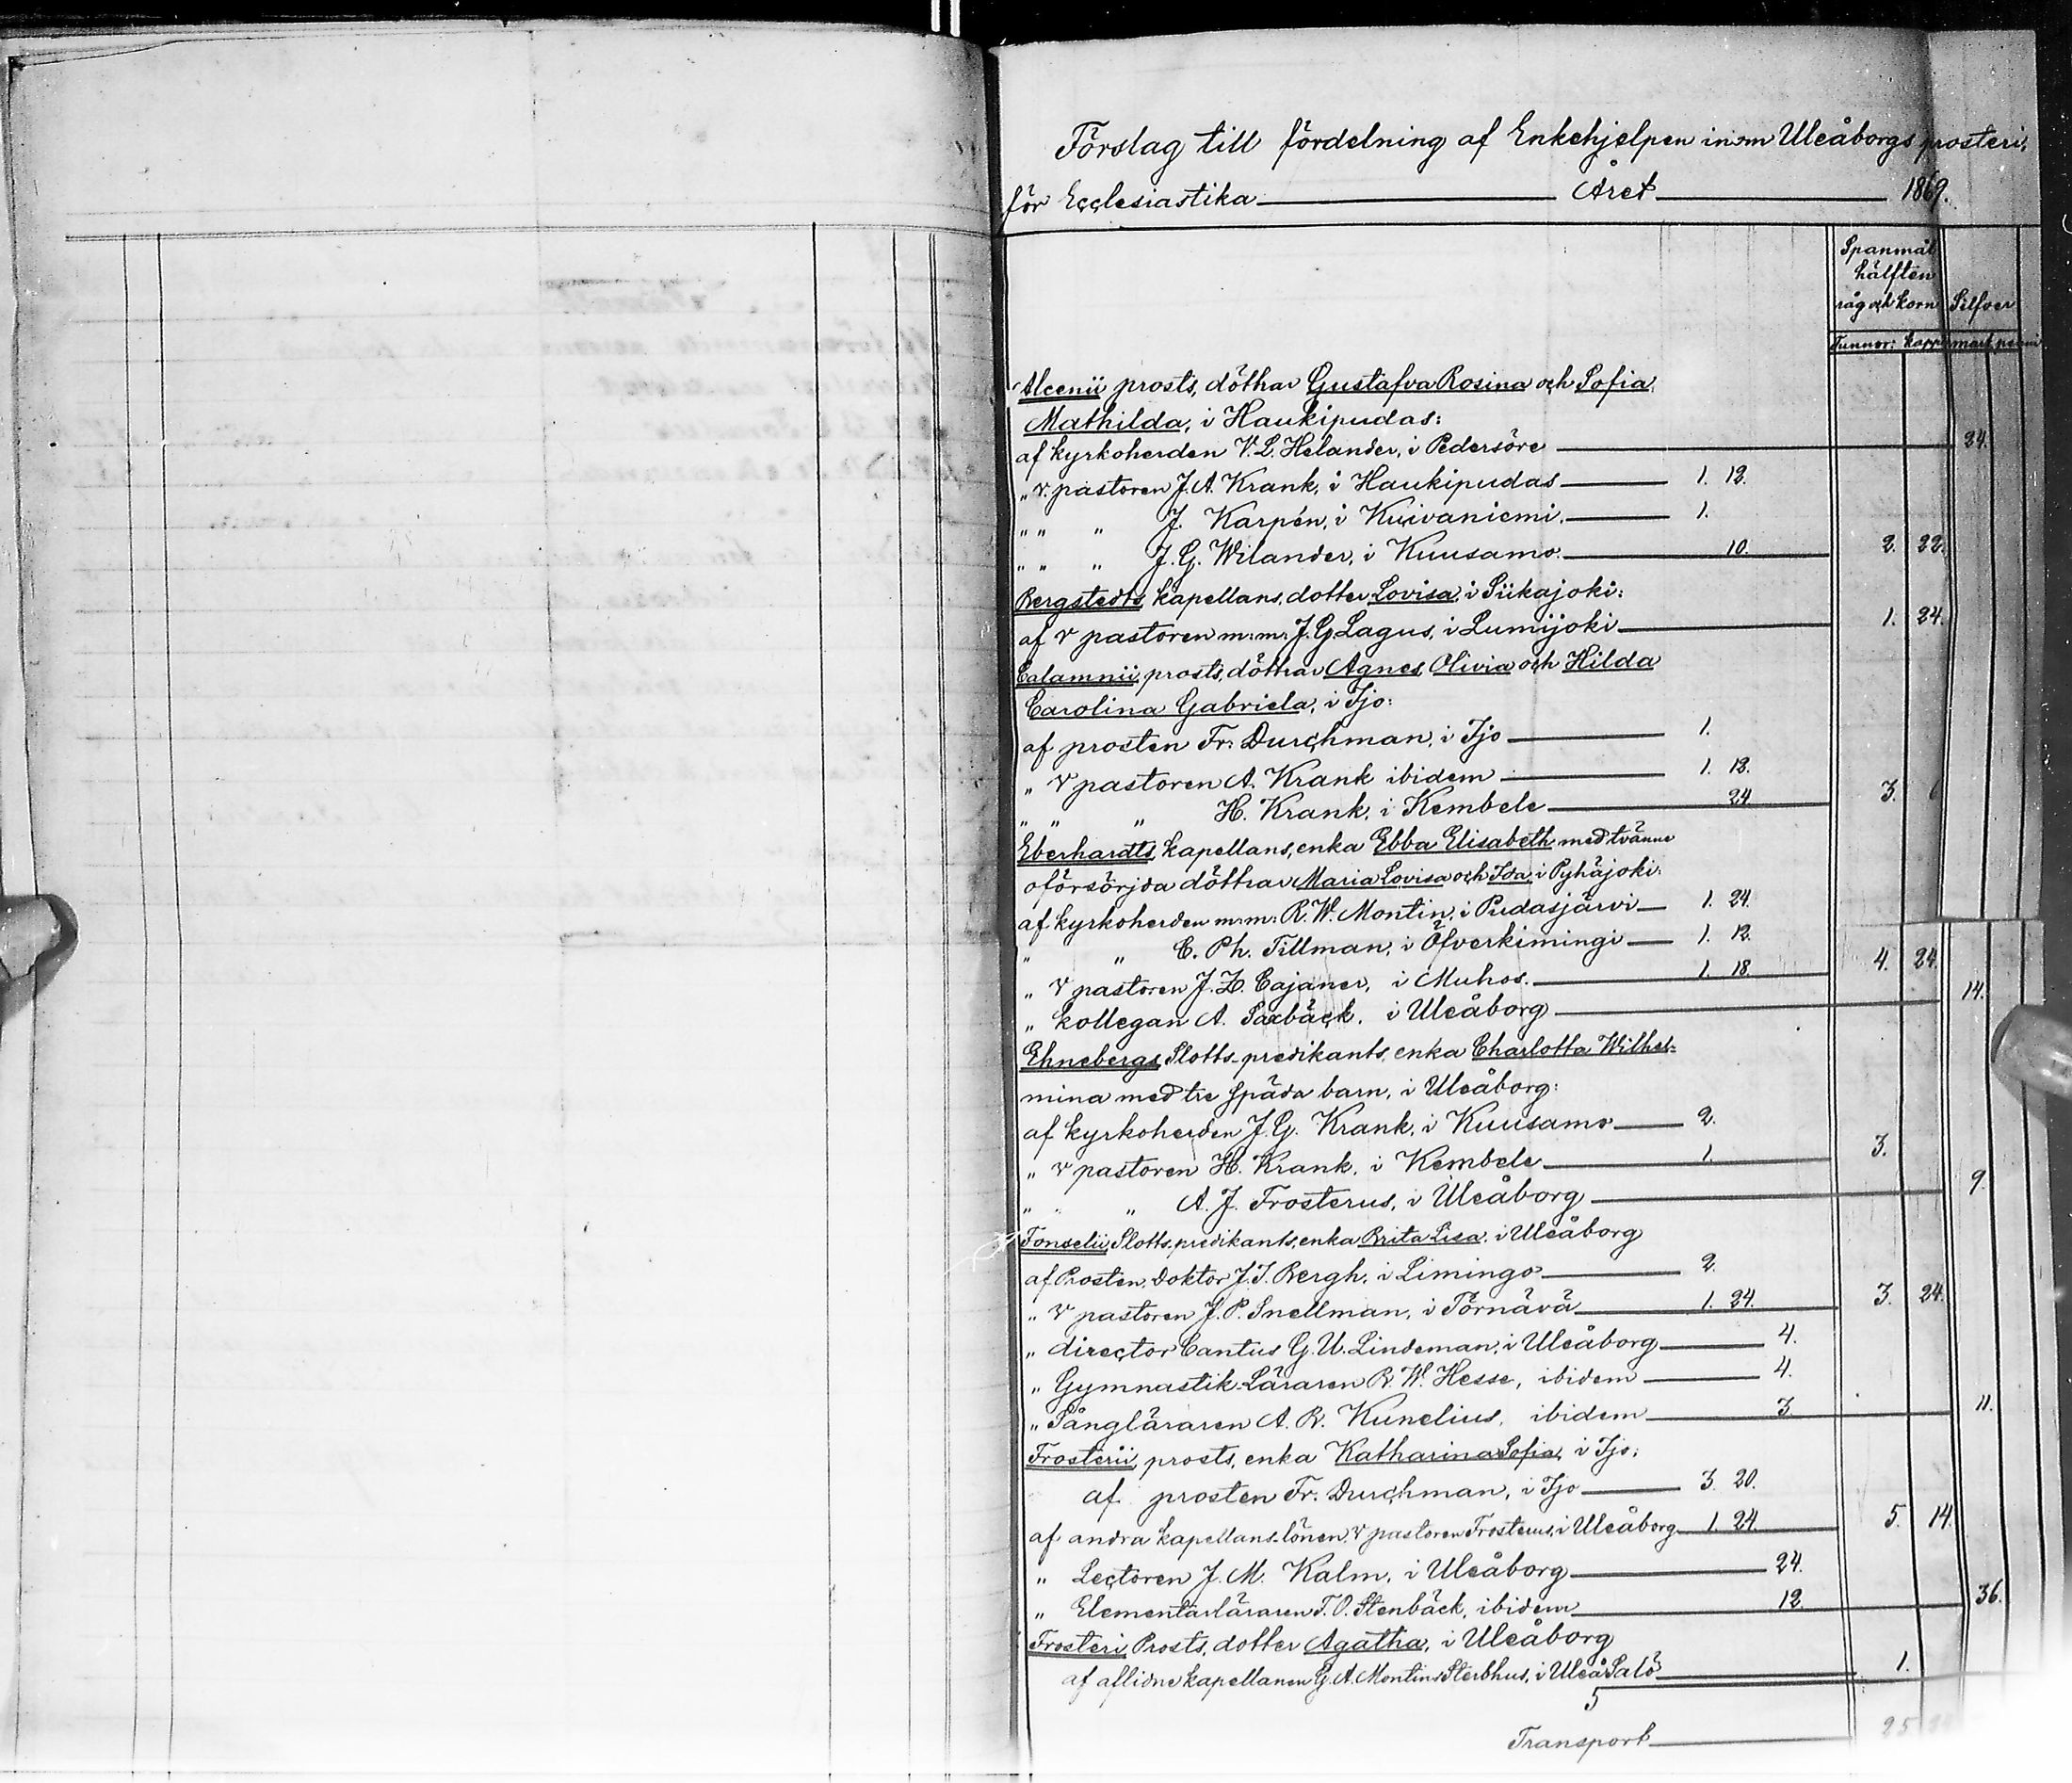 Förslag till fördelning af Enkehjelpen inom Uleåborgs prosteri,
för Ecclesiastika Året 1869.
Spanmål
hälften
råg och korn Silfver
Tunnor: kapp: mark penni
Alcenii prosts, döttrar Gustafva Rosina och Sofia
Mathilda, i Haukipudas:
af kyrkoherden V. L. Helander, i Pedersöre 24.
„ v. pastoren J. A. Krank, i Haukipudas 1. 12.
„ „ „ J. Karpén, i Kuivaniemi. 1.
„ „ „ J. G. Wilander, i Kuusamo. 10. 2. 22.
Bergstedts, kapellans, dotter Lovisa, i Siikajoki:
af v pastoren m: m: J. G. Lagus, i Lumijoki 1. 24.
Calamnii, prosts, döttrar Agnes, Olivia och Hilda
Carolina Gabriela, i Ijo:
af prosten Fr: Durchman, i Ijo 1.
„ v pastoren A. Krank ibidem 1. 12.
„ „ „ H. Krank, i Kembele 24 3. 6
Eberhardts, kapellans, enka Ebba Elisabeth med tvänne
oförsörjda döttrar Maria Lovisa och Ida, i Pyhäjoki:
af kyrkoherden m: m: R. W. Montin, i Pudasjärvi 1. 24.
„ „ C. Ph. Tillman, i Öfverkimingi 1. 12.
„ v pastoren J. Z. Cajaner, i Muhos. 1. 18. 4. 24.
„ kollegan A. Saxbäck. i Uleåborg 14.
Ehnebergs, Slotts-predikants, enka Charlotta Wilhel-
mina med tre späda barn, i Uleåborg:
af kyrkoherden J. G. Krank, i Kuusamo 2.
„ v pastoren H. Krank, i Kembele 1. 3.
„ „ „ A. J. Frosterus, i Uleåborg 9.
Fonselii, Slotts-predikants, enka Brita Lisa, i Uleåborg
af Prosten, Doktor J. I. Bergh, i Limingo 2.
„ v pastoren J. P. Snellman, i Törnävä 1. 24. 3. 24.
„ director Cantus G. U. Lindeman, i Uleåborg 4.
„ Gymnastik-Läraren R. W. Hesse, ibidem 4.
„ Sångläraren A. R. Kunelius, ibidem 3 11.
Frosterii, prosts, enka Katharina Sofia, i Ijo:
af prosten Fr: Durchman, i Ijo 3. 20.
af andra kapellans-lönen, v pastoren Frosterus, i Uleåborg 1. 24. 5. 14.
„ Lectoren J. M. Kalm, i Uleåborg 24.
„ Elementarläraren F. O. Stenbäck, ibidem 12. 36.
Frosteri, Prosts, dotter Agatha, i Uleåborg
af aflidne kapellanen G. A. Montins Sterbhus, i Uleå Salo 1.
5
Transport 25